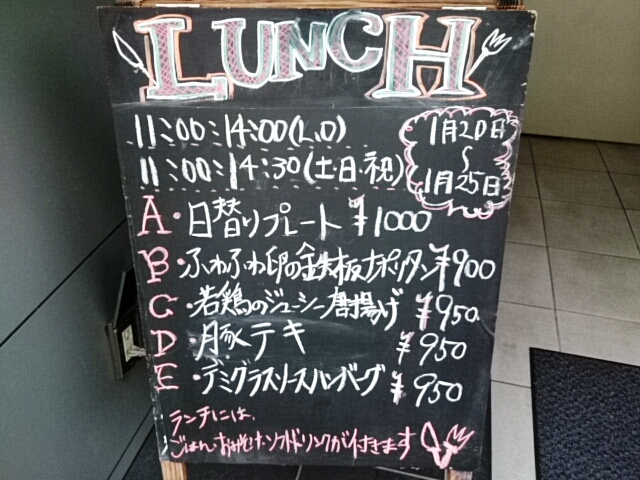 LUNCH
11:00:14:00(L.O)
11:00:14:30(土・日・祝)
1月20日
～
1月25日
A・日替りプレート ¥1000
B・ふわふわ卵の鉄板ナポリタン ¥900
C・若鶏のジューシー唐揚げ ¥950
D・豚テキ ¥950
E・デミグラスソースハンバーグ ¥950
ランチには、
ごはん・おみそ汁・ソフトドリンクが付きます